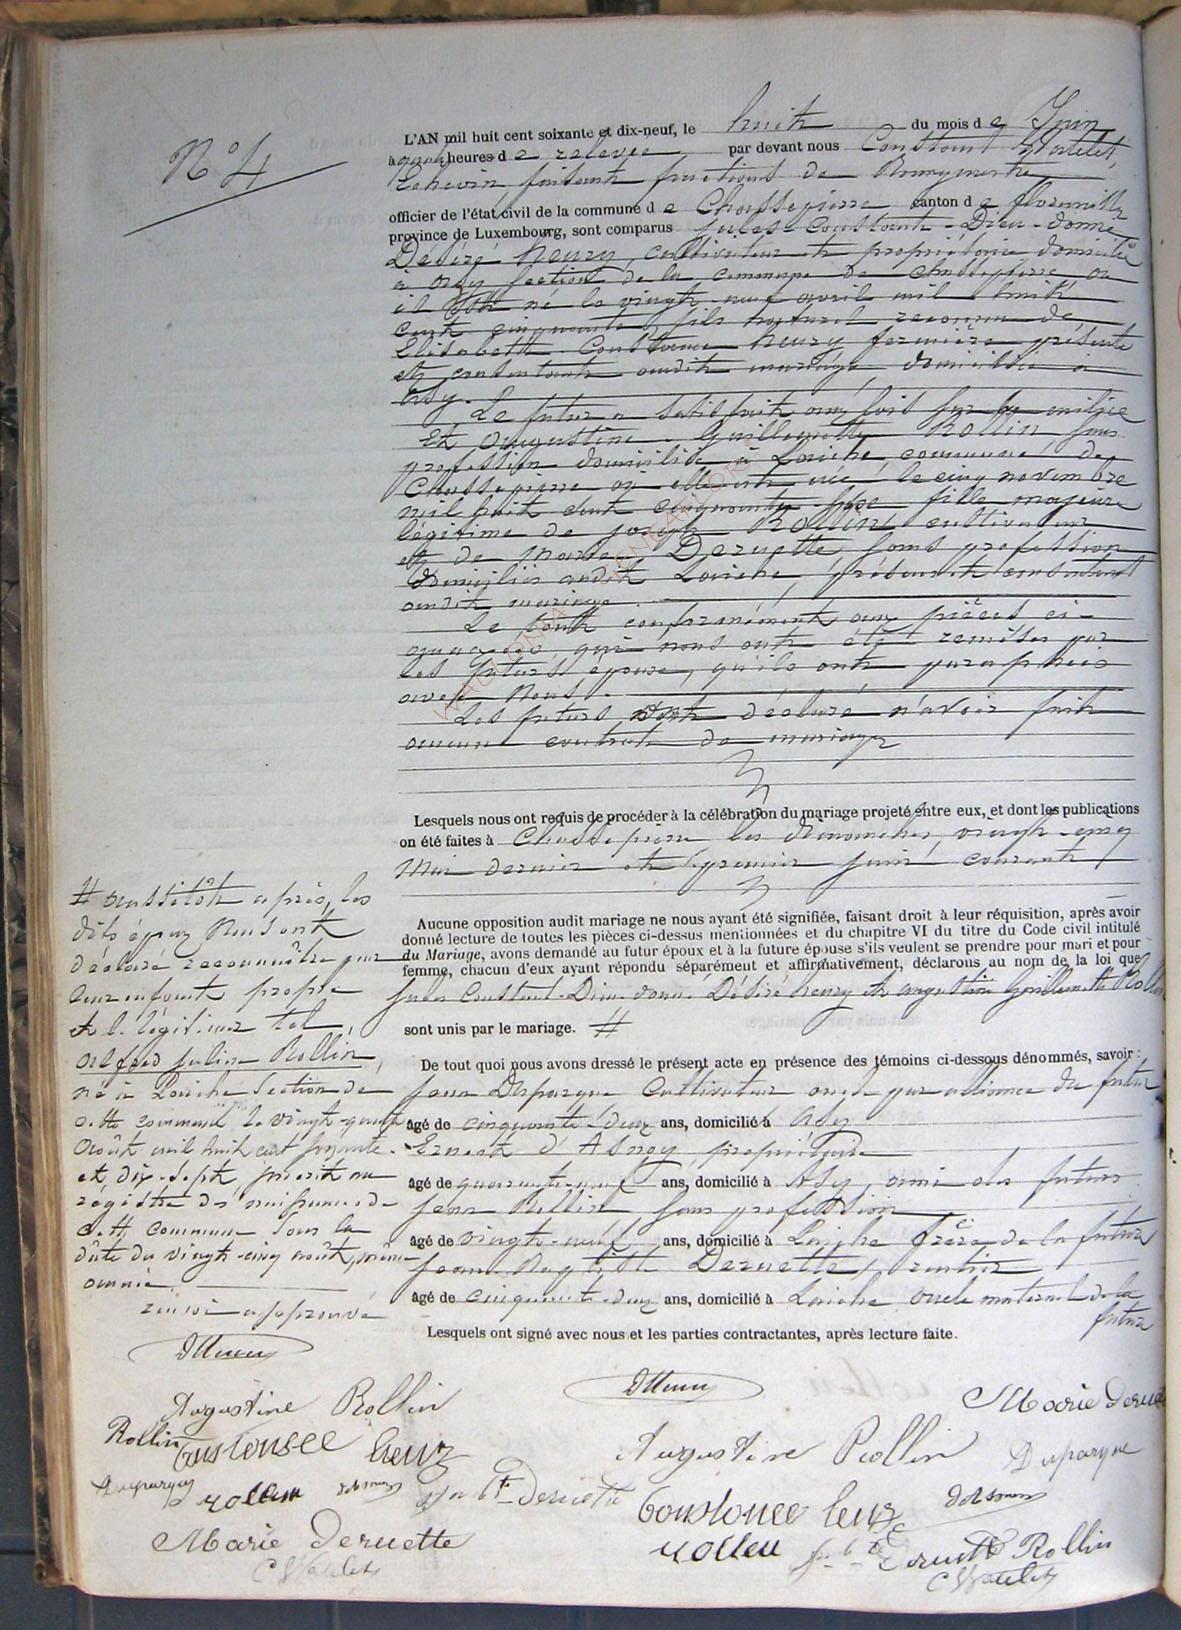 N° 4
L'AN mil huit cent soixante et dix-neuf, le huit du mois de Juin
à quatre heures de relevée par devant nous Constant Watelet
Echevin, faisant fonctions de Bourgmestre
officier de l'état civil de la commune de Chassepierre canton de Florenville
province de Luxembourg, sont comparus Jules-Constant-Dieu-donné
Désiré Heury, cultivateur et propriétaire domicilié
à Azy, section de la commune de Chassepierre où
il est né le vingt-neuf avril mil huit
cent cinquante, fils naturel reconnu de
Elisabeth Constance Heury fermière présente
et consentante audit mariage, domiciliée à
Azy.
Le futur a satisfait aux lois sur la milice
Et Augustine-Guillemette Rollin sans
profession domiciliée à Laiche, commune de
Chassepierre où elle est née le cinq novembre
mil huit cent cinquante fille majeure
légitime de Joseph ROLLIN cultivateur
et de Marie Deruette sans profession
domiciliés audit Laiche, présents et consentant
audit mariage
Le tout conformément aux pièces ci-
annexées, qui nous ont été remises par
les futurs époux, qu'ils ont paraphées
avec Nous.
Les futurs ont déclaré n'avoir fait
aucun contrat de mariage
Lesquels nous ont requis de procéder à la célébration du mariage projeté entre eux, et dont les publications
on été faites à Chassepierre les dimanches, vingt-cinq
Mai dernier et premier juin courant
Aucune opposition audit mariage ne nous ayant été signifiée, faisant droit à leur réquisition, après avoir
donné lecture de toutes les pièces ci-dessus mentionnées et du chapitre VI du titre du Code civil intitulé
du Mariage, avons demandé au futur époux et à la future épouse s'ils veulent se prendre pour mari et pour
femme, chacun d'eux ayant répondu séparément et affirmativement, déclarons au nom de la loi que
Jules Constant-Dieu-donné Désiré Heury et Augustine Guillemette Rollin
sont unis par le mariage. #
# aussitôt après, les
dits époux Nous ont
déclaré reconnaître pour
leur enfant propre
et le légitimer tel
Alfred Julien Rollin,
né à Laiche section de
cette commune le vingt-quatre
Août mil huit cent soixante-
et dix-sept, inscrit au
régistre des naissances de
cette commune sous la
date du vingt-cinq août, même
année.
renvoi approuvé
De tout quoi nous avons dressé le présent acte en présence des témoins ci-dessous dénommés, savoir :
Jean Duparque Cultivateur oncle par alliance du futur
âgé de cinquante-deux ans, domicilié à Azy
Ernest d'Asnoy propriétaire
âgé de quarante-neuf ans, domicilié à Azy, ami des futurs
Jean Rollin sans profession
âgé de vingt-neuf ans, domicilié à Laiche frère de la future
Jean Baptiste Deruette, rentier
âgé de cinquante-deux ans, domicilié à Laiche oncle maternel de la
future
Lesquels ont signé avec nous et les parties contractantes, après lecture faite.
Augustine Rollin
Rollin Constance heury
Duparque rollin
Jn Bte Deruette
Marie Deruette
C Watelet
Marie Deruette
Augustine Rollin Duparque
Constance heury
rollin Jn Bte Deruette Rollin
C Watelet